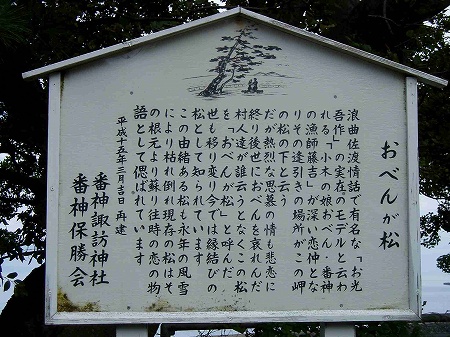 おべんが松
浪曲佐渡情話で有名な「お光
吾作」の実在のモデルと云わ
れる「小木の娘おべん・番神
の漁師藤吉」が深い恋仲とな
りその逢引きの場所がこの岬
の松の下と云う
だが熱烈な思慕の情も悲恋に
終り後世におべんを哀れんだ
村人達が誰云うとなくこの松
を「おべんが松」と呼んだ
世も移り変り今では縁結びの
松として知られています
この由緒ある松も永年の風雪
により枯れ倒れ現存の松はそ
の根元より蘇り往時の恋の物
語として偲ばれています
平成十五年三月吉日 再建
番神諏訪神社
番神保勝会